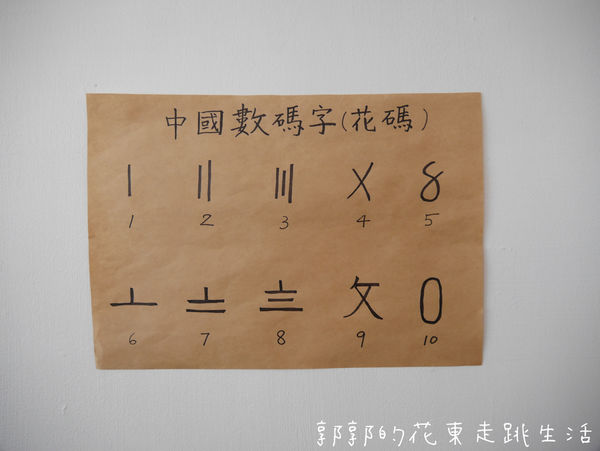 中國數碼字(花碼)
〡 〢 〣 〤 〥
1 2 3 4 5
〦 〧 〨 〩 〇
6 7 8 9 10
郭郭的花東走跳生活